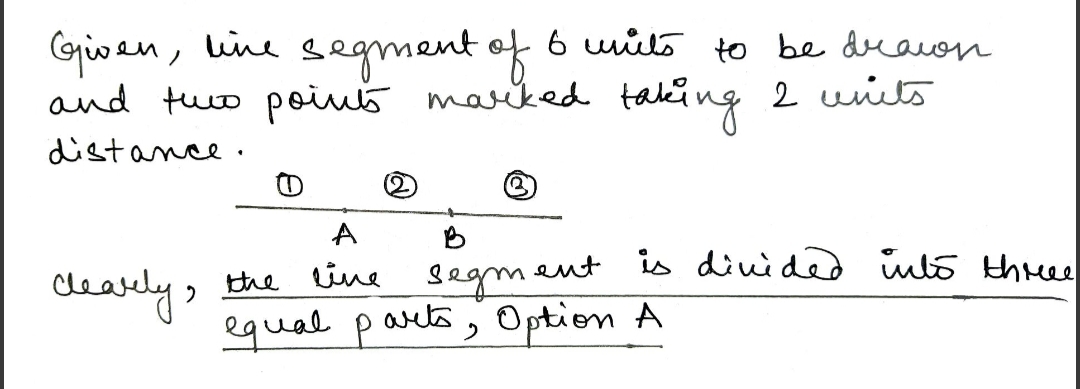 Given, line segment of 6 units to be drawn
and two points marked taking 2 units
distance.
① ② ③
A B
Clearly, the line segment is divided into three
equal parts, Option A